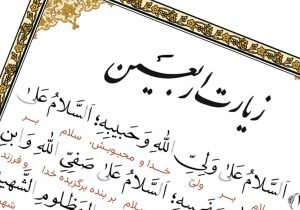 زیارت اربعین
اَلسَّلامُ عَلی وَلِیِّ اللهِ وَ حَبیبِهِ؛ اَلسَّلامُ عَلی
سلام بر ولیّ خدا و محبوبش، سلام بر
اَلسَّلامُ عَلی صَفِیِّ اللهِ وَابْنِ
سلام بر بنده برگزیده خدا و فرزند
الْمَظْلومِ الشَّهیدِ